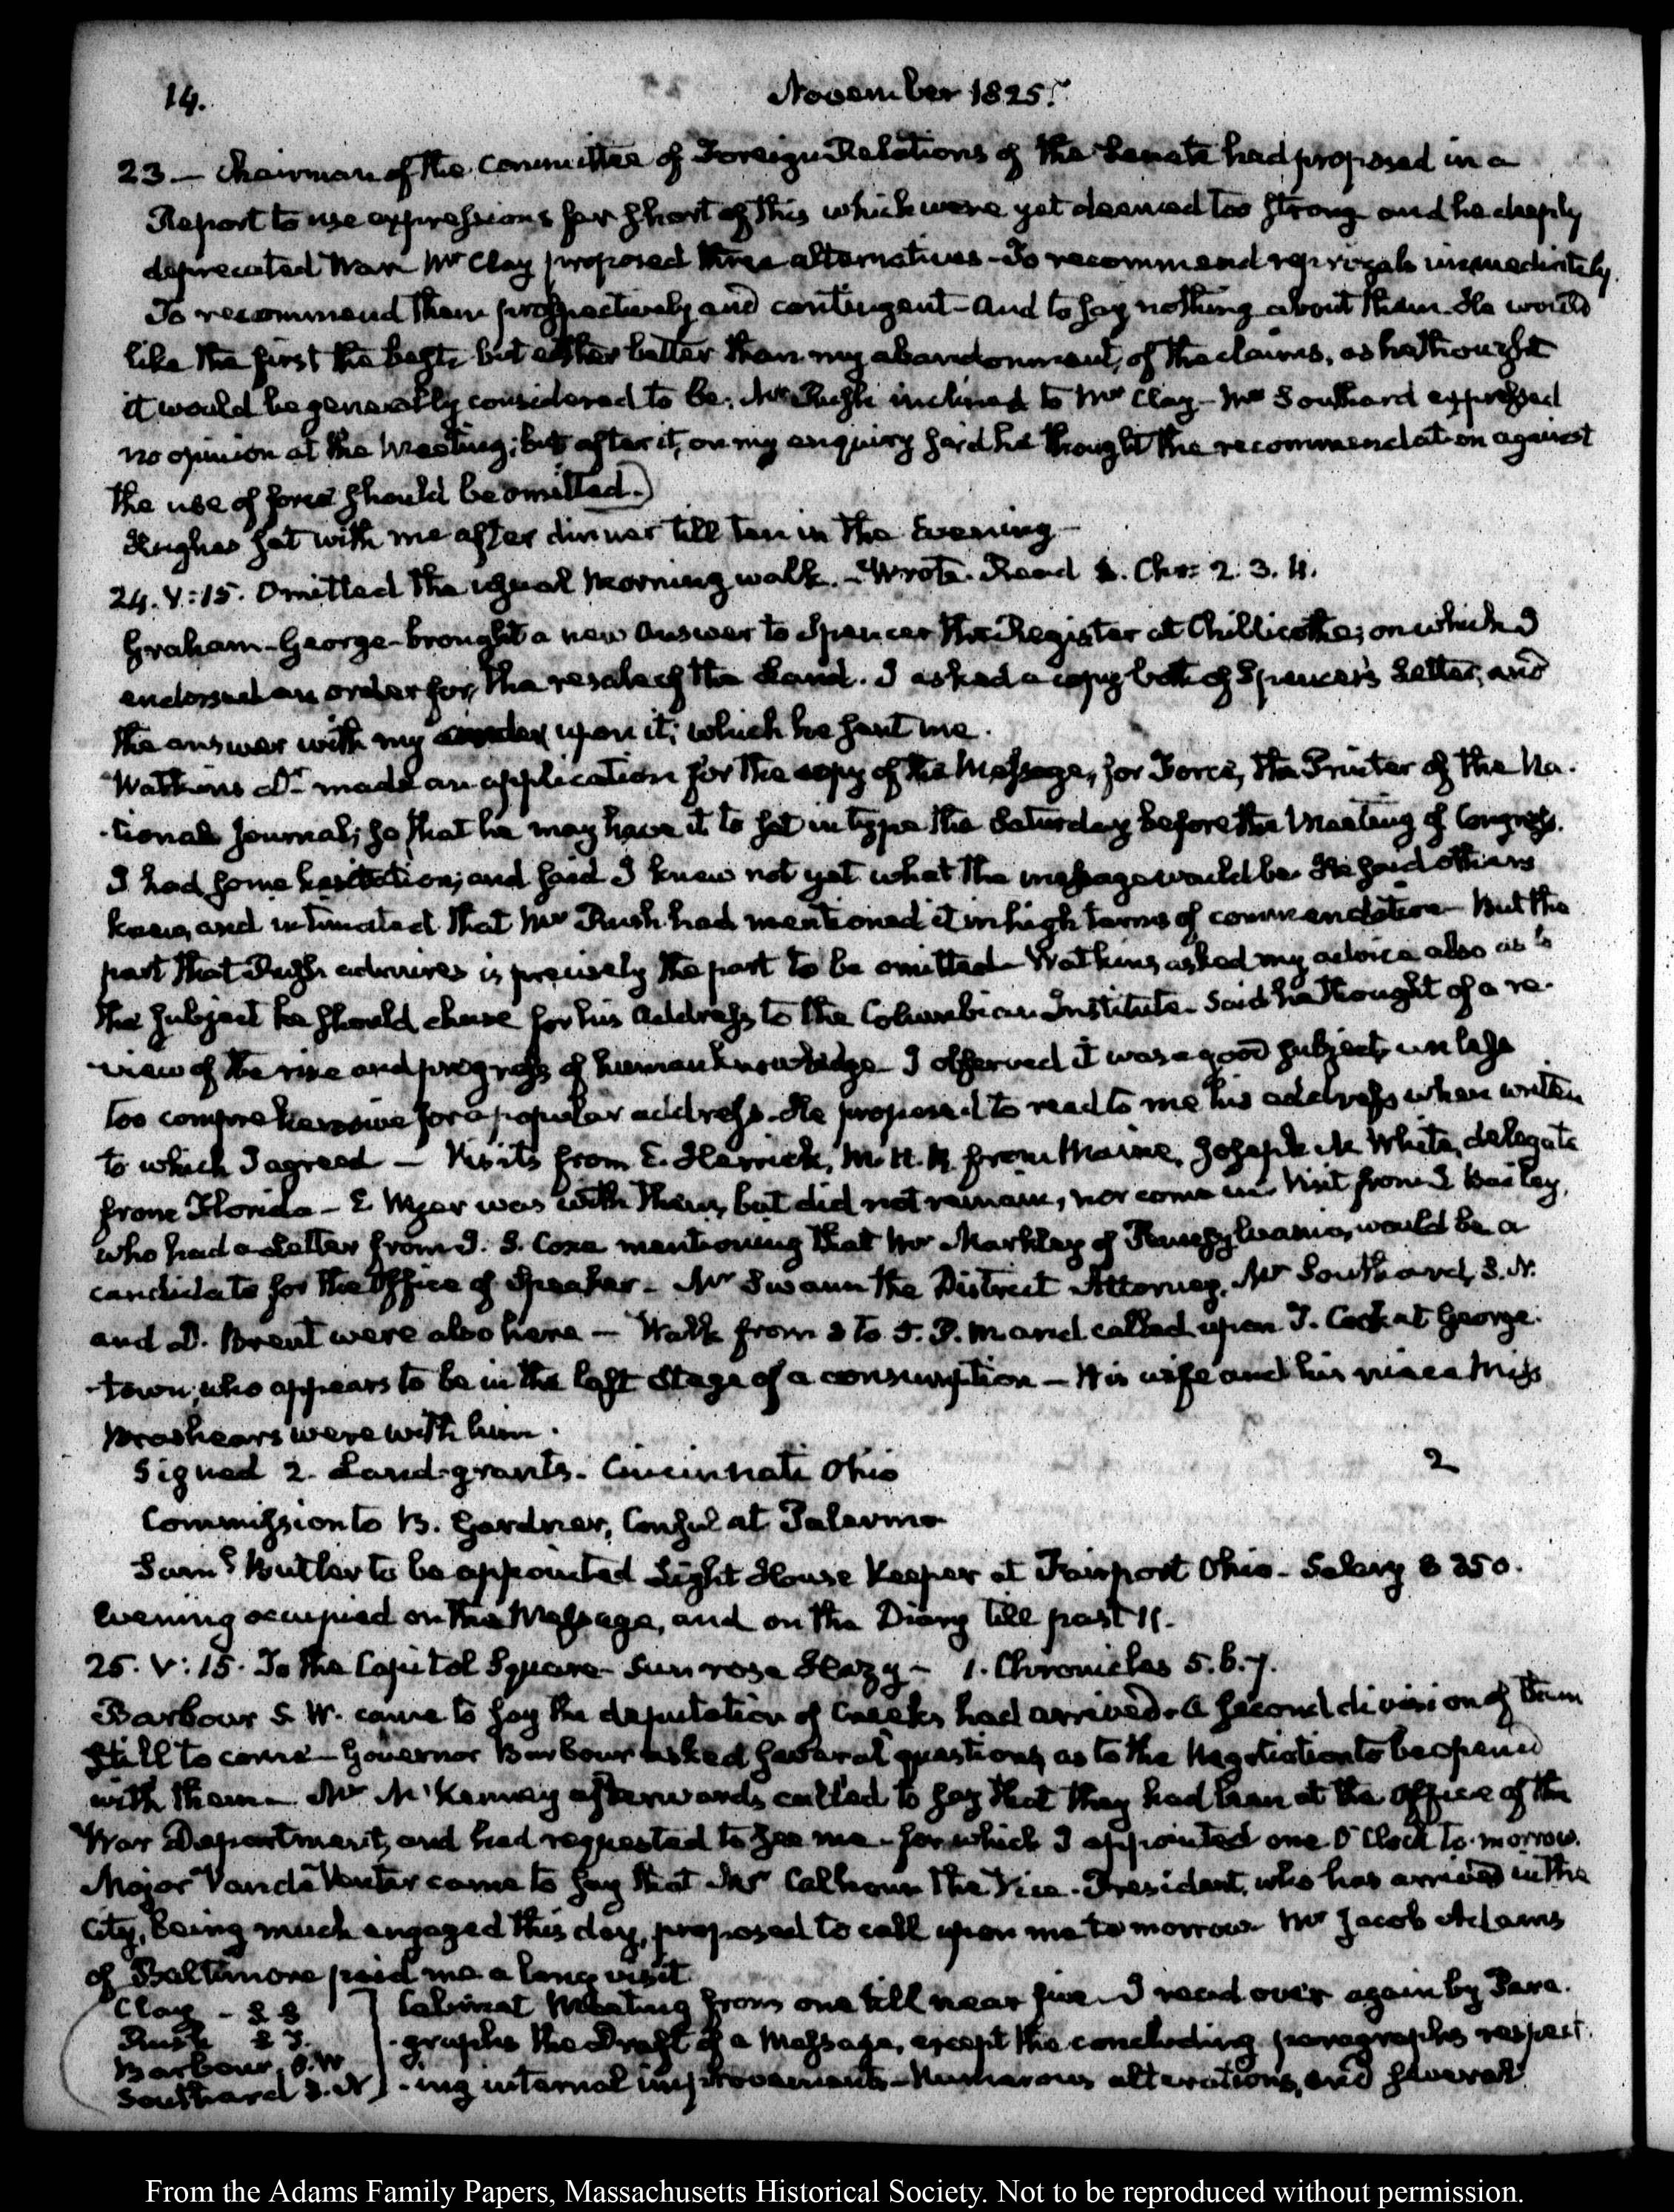 14.
November 1825.
23 — Chairman of the Committee of Foreign Relations of the Senate had proposed in a
Report to use expressions far short of this which were yet deemed too strong and he deeply
deprecated War. Mr Clay proposed three alternatives - To recommend reprizals immediately.
To recommend them prospectively and contingent - And to say nothing about them. He would
like the first the best; but either better than my abandonment, of the claims, as he thought
it would be generally considered to be. Mr Rush inclined to Mr Clay - Mr Southard expressed
no opinion at the Meeting; but after it, on my enquiry said he thought the recommendation against
the use of force should be omitted.)
Hughes sat with me after dinner till ten in the Evening -
24. V:15. Omitted the usual Morning walk. - Wrote. Read 1. Chr: 2. 3. 4.
Graham - George - brought a new Answer to Spencer the Register at Chillicothe; on which I
endorsed an order for the resale of the Land. I asked a copy both of Spencer's Letter, and
the answer with my upon it; which he sent me.
Watkins Dr made an application for the copy of the Message, for Force, the Printer of the Na-
-tional Journal; so that he may have it to set in type the Saturday before the Meeting of Congress.
I had some hesitation; and said I knew not yet what the message would be. He said others
knew, and intimated that Mr Rush had mentioned it in high terms of commendation - But the
part that Rush admires is precisely the part to be omitted - Watkins asked my advice also as to
the subject he should chuse for his Address to the Columbian Institute. Said he thought of a re-
-view of the rise and progress of human knowledge - I observed it was a good subject, unless
too comprehensive for a popular address. He proposed to read to me his address when written
to which I agreed — Visits from E. Herrick, M.H.R. from Maine, Joseph M White, delegate
from Florida - E Wyer was with them, but did not remain, nor come in. Visit from J Bailey,
who had a Letter from J. S. Coxe mentioning that Mr Markley of Pennsylvania, would be a
candidate for the Office of Speaker - Mr Swann the District Attorney, Mr Southard, S. N.
and D. Brent were also here — Walk from 3 to 5. P.M. and called upon T. Cook at George-
-town; who appears to be in the last Stage of a consumption — His wife and his niece Miss
Brashears were with him.
Signed 2. Land-grants. Cincinnati Ohio 2
Commission to B. Gardner, Consul at Palermo
Saml Butler to be appointed Light House Keeper at Fairport Ohio - Salary $ 350.
Evening occupied on the Message, and on the Diary till past 11.
25. V:15. To the Capitol Square - Sun rose Hazy - 1. Chronicles 5. 6. 7.
Barbour S. W. came to say the deputation of Creeks had arrived - A second division of them
still to come - Governor Barbour asked several questions as to the Negotiation to be opened
with them — Mr McKenney afterwards called to say that they had been at the Office of the
War Department, and had requested to see me - for which I appointed one O'Clock to-morrow.
Major Vande Venter came to say that Mr Calhoun the Vice-President, who has arrived in the
City, being much engaged this day, proposed to call upon me to morrow. Mr Jacob Adams
of Baltimore paid me a long visit
Clay - S S
Rush S T.
Barbour, S.W
Southard S.N
Cabinet Meeting from one till near five - I read over again by Para-
-graphs the Draft of a Message, except the concluding paragraphs respect-
-ing internal improvements - Numerous alterations, and several
From the Adams Family Papers, Massachusetts Historical Society. Not to be reproduced without permission.